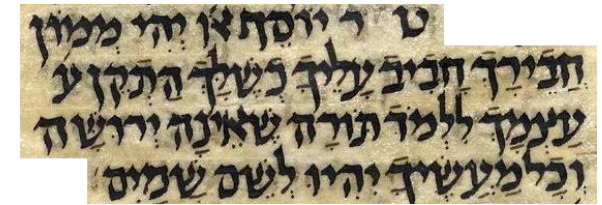 ט ר יוֹסֵה אוֹ יְהִי מָמוֹן
חֲבֵירָךְ חָבִיב עָלֶיךָ כְּשֶׁלָּךְ הַתְקֵן ע
עַצְמָךְ לִלְמֹד תּוֹרָה שֶׁאֵינָה יְרוּשָּׁה
וְכָל מַעֲשֶׂיךָ יִהְיוּ לְשֵׁם שָׁמַיִם